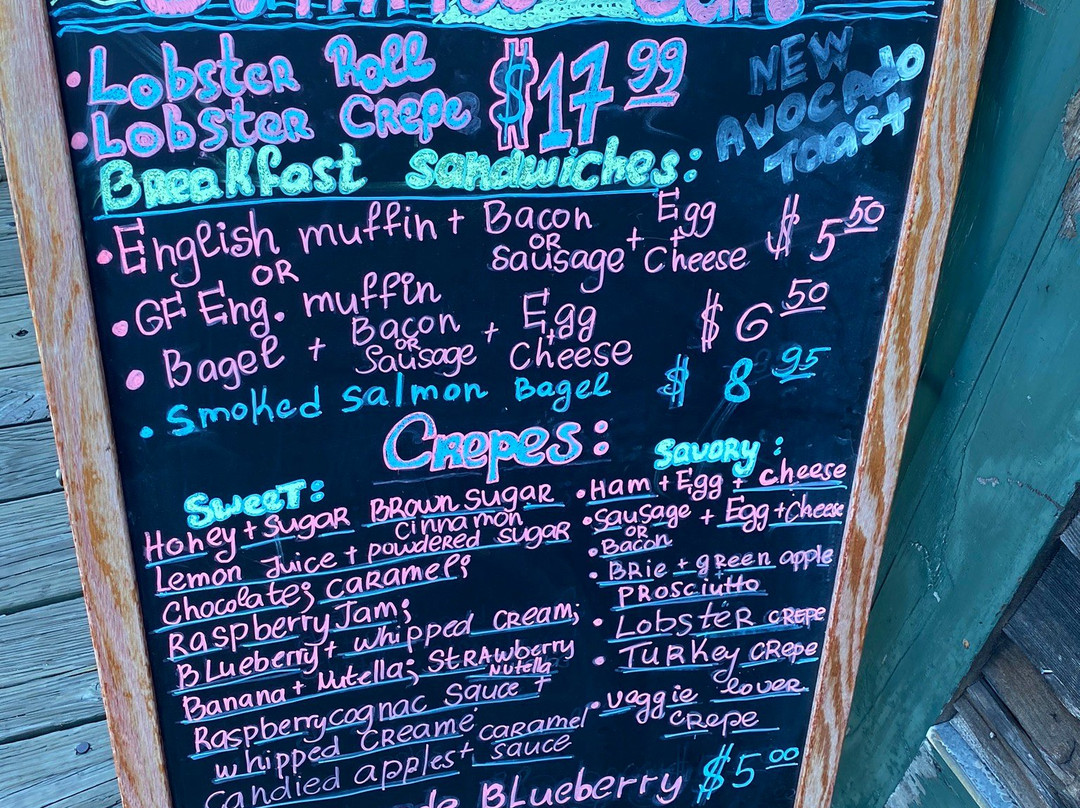 • Lobster Roll
• Lobster Crepe $17 99
NEW
AVOCADO
TOAST
Breakfast sandwiches:
• English muffin + Bacon OR Sausage + Egg + Cheese $5 50
OR
• GF Eng. muffin
• Bagel + Bacon OR Sausage + Egg + Cheese $6 50
• Smoked Salmon Bagel $8 95
Crepes:
Sweet:
Honey + Sugar Brown Sugar
cinnamon
Lemon Juice + powdered sugar
Chocolate; Caramel;
Raspberry Jam;
Blueberry + whipped cream;
Banana + Nutella; Strawberry
Nutella
Raspberry cognac Sauce +
whipped creame
candied apples + caramel
sauce
Savory:
• Ham + Egg + cheese
• Sausage + Egg + Cheese
OR
• Bacon
• Brie + green apple
prosciutto
• Lobster crepe
• Turkey crepe
• veggie lover
crepe
Blueberry $5 00